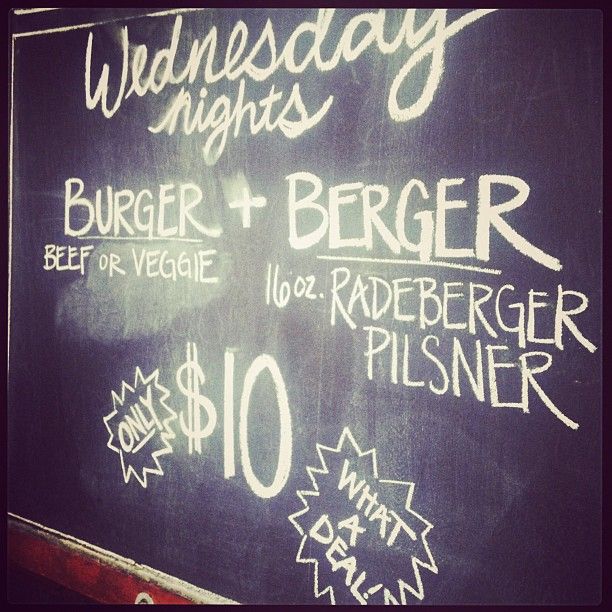 Wednesday
nights
BURGER + BERGER
BEEF OR VEGGIE
16 oz. RADEBERGER
PILSNER
ONLY $10
WHAT
A
DEAL!